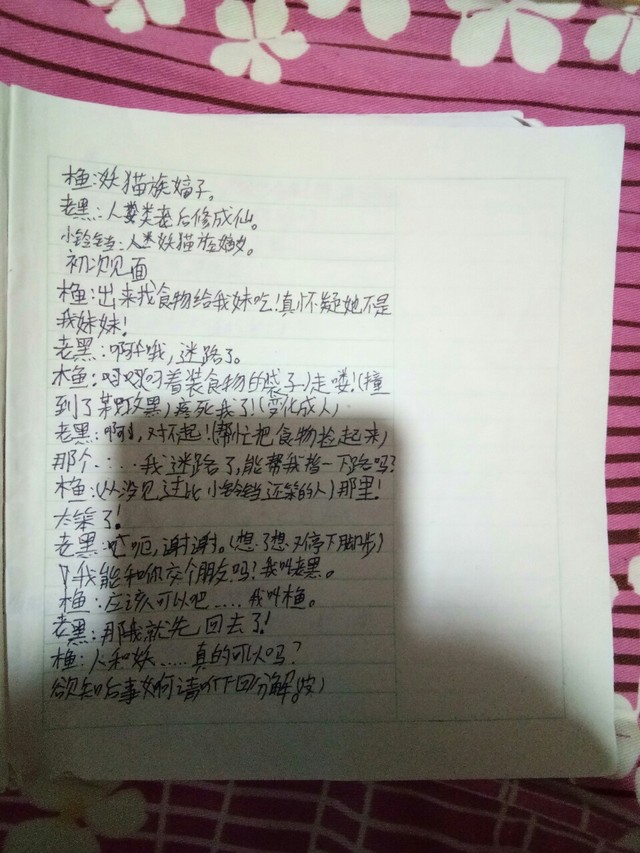 木鱼:妖猫族嫡子。
老黑:人类老后修成仙。
小铃铛:人类妖猫族嫡女。
初次见面
木鱼:出来找食物给我妹吃!真怀疑她不是
我妹妹!
老黑:啊哦,迷路了。
木鱼:叼着装食物的袋子)走喽!(撞
到了某老黑)疼死我了!(变化成人)
老黑:啊,对不起!(帮忙把食物捡起来)
那个.....我迷路了,能帮我指一下路吗?
木鱼:(从没见过比小铃铛还笨的人)那里!
太笨了!
老黑:呃,谢谢。(想了想又停下脚步)
我能和你交个朋友吗?我叫老黑。
木鱼:应该可以吧.....我叫木鱼。
老黑:那我就先回去了!
木鱼:人和妖.....真的可以吗?
欲知后事如何请听下回分解